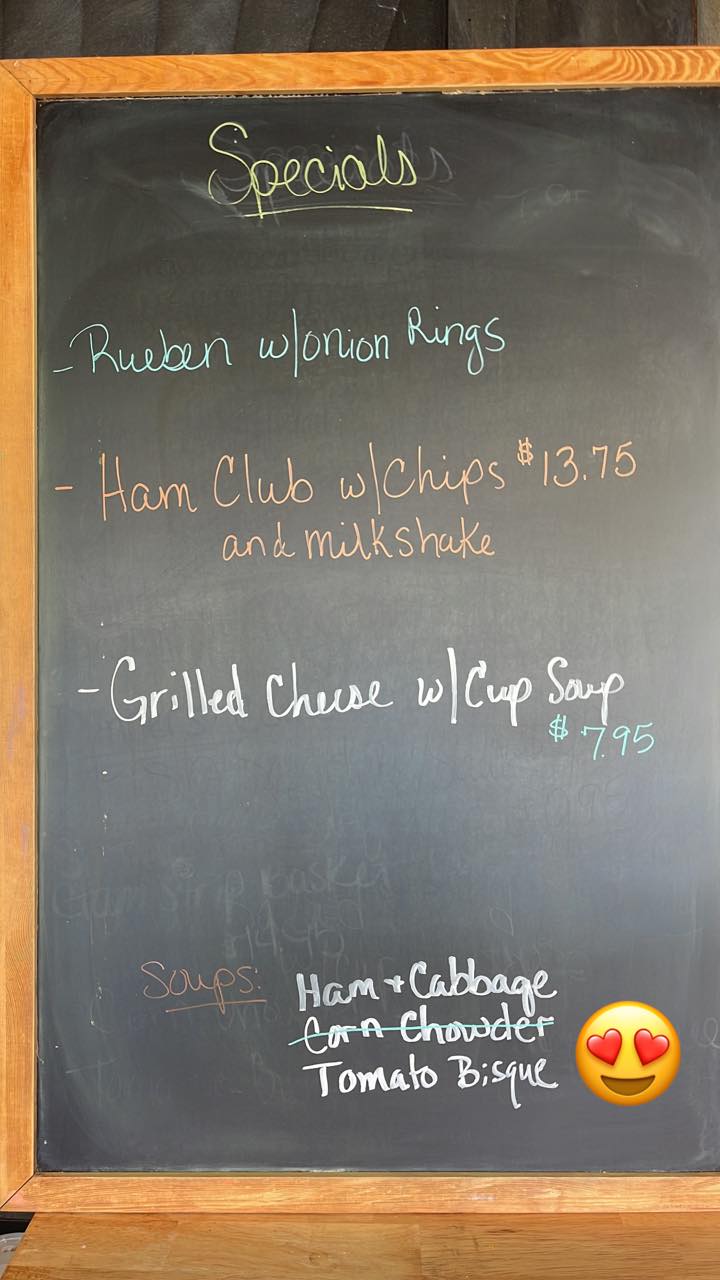 Specials
- Rueben w/onion Rings
- Ham Club w/Chips $13.75
and milkshake
- Grilled Cheese w/Cup Soup
$7.95
Soups: Ham + Cabbage
Corn Chowder
Tomato Bisque